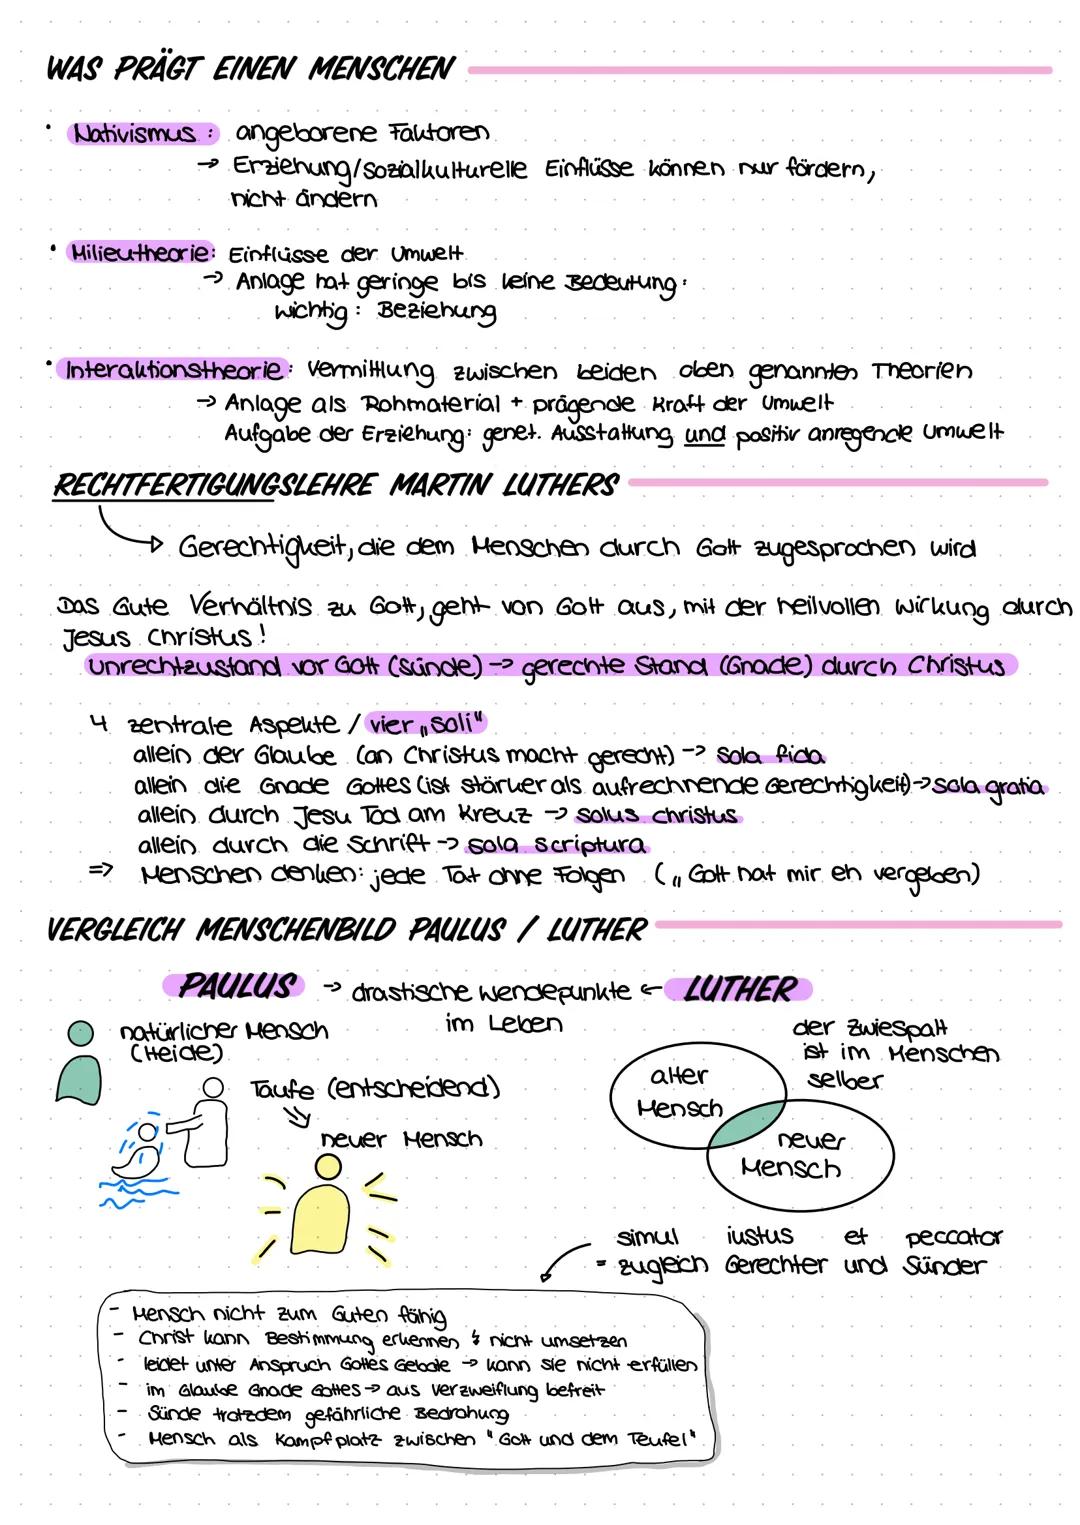 WAS PRÄGT EINEN MENSCHEN
• Nativismus: angeborene Faktoren
→ Erziehung/sozialkulturelle Einflüsse können nur fördern,
nicht ändern
• Milieutheorie: Einflüsse der Umwelt
→ Anlage hat geringe bis keine Bedeutung.
wichtig: Beziehung
• Interaktionstheorie: Vermittlung zwischen beiden oben genannten Theorien
→ Anlage als Rohmaterial + prägende Kraft der Umwelt
Aufgabe der Erziehung: genet. Ausstattung und positiv anregende Umwelt
RECHTFERTIGUNGSLEHRE MARTIN LUTHERS
Gerechtigkeit, die dem Menschen durch Gott zugesprochen wird
Das Gute Verhältnis zu Gott, geht von Gott aus, mit der heilvollen Wirkung durch
Jesus Christus!
Unrechtzustand vor Gott (Sünde) → gerechte Stand (Gnade) durch Christus
4 zentrale Aspekte / vier „Soli"
allein der Glaube (an Christus macht gerecht) → sola fida
allein die Gnade Gottes (ist stärker als aufrechnende Gerechtigkeit) → sola gratia
allein durch Jesu Tod am Kreuz → solus christus
allein durch die Schrift → sola scriptura
=> Menschen denken: jede Tat ohne Folgen („Gott hat mir eh vergeben)
VERGLEICH MENSCHENBILD PAULUS / LUTHER
PAULUS → drastische Wendepunkte ← LUTHER
im Leben
natürlicher Mensch
(Heide)
Taufe (entscheidend)
neuer Mensch
der Zwiespalt
ist im Menschen
selber
alter
Mensch
neuer
Mensch
simul iustus et peccator
= zugleich Gerechter und Sünder
- Mensch nicht zum Guten fähig
- Christ kann Bestimmung erkennen ↯ nicht umsetzen
- leidet unter Anspruch Gottes Gebote → kann sie nicht erfüllen
- im Glaube Gnade Gottes → aus Verzweiflung befreit
- Sünde trotzdem gefährliche Bedrohung
- Mensch als Kampfplatz zwischen "Gott und dem Teufel"